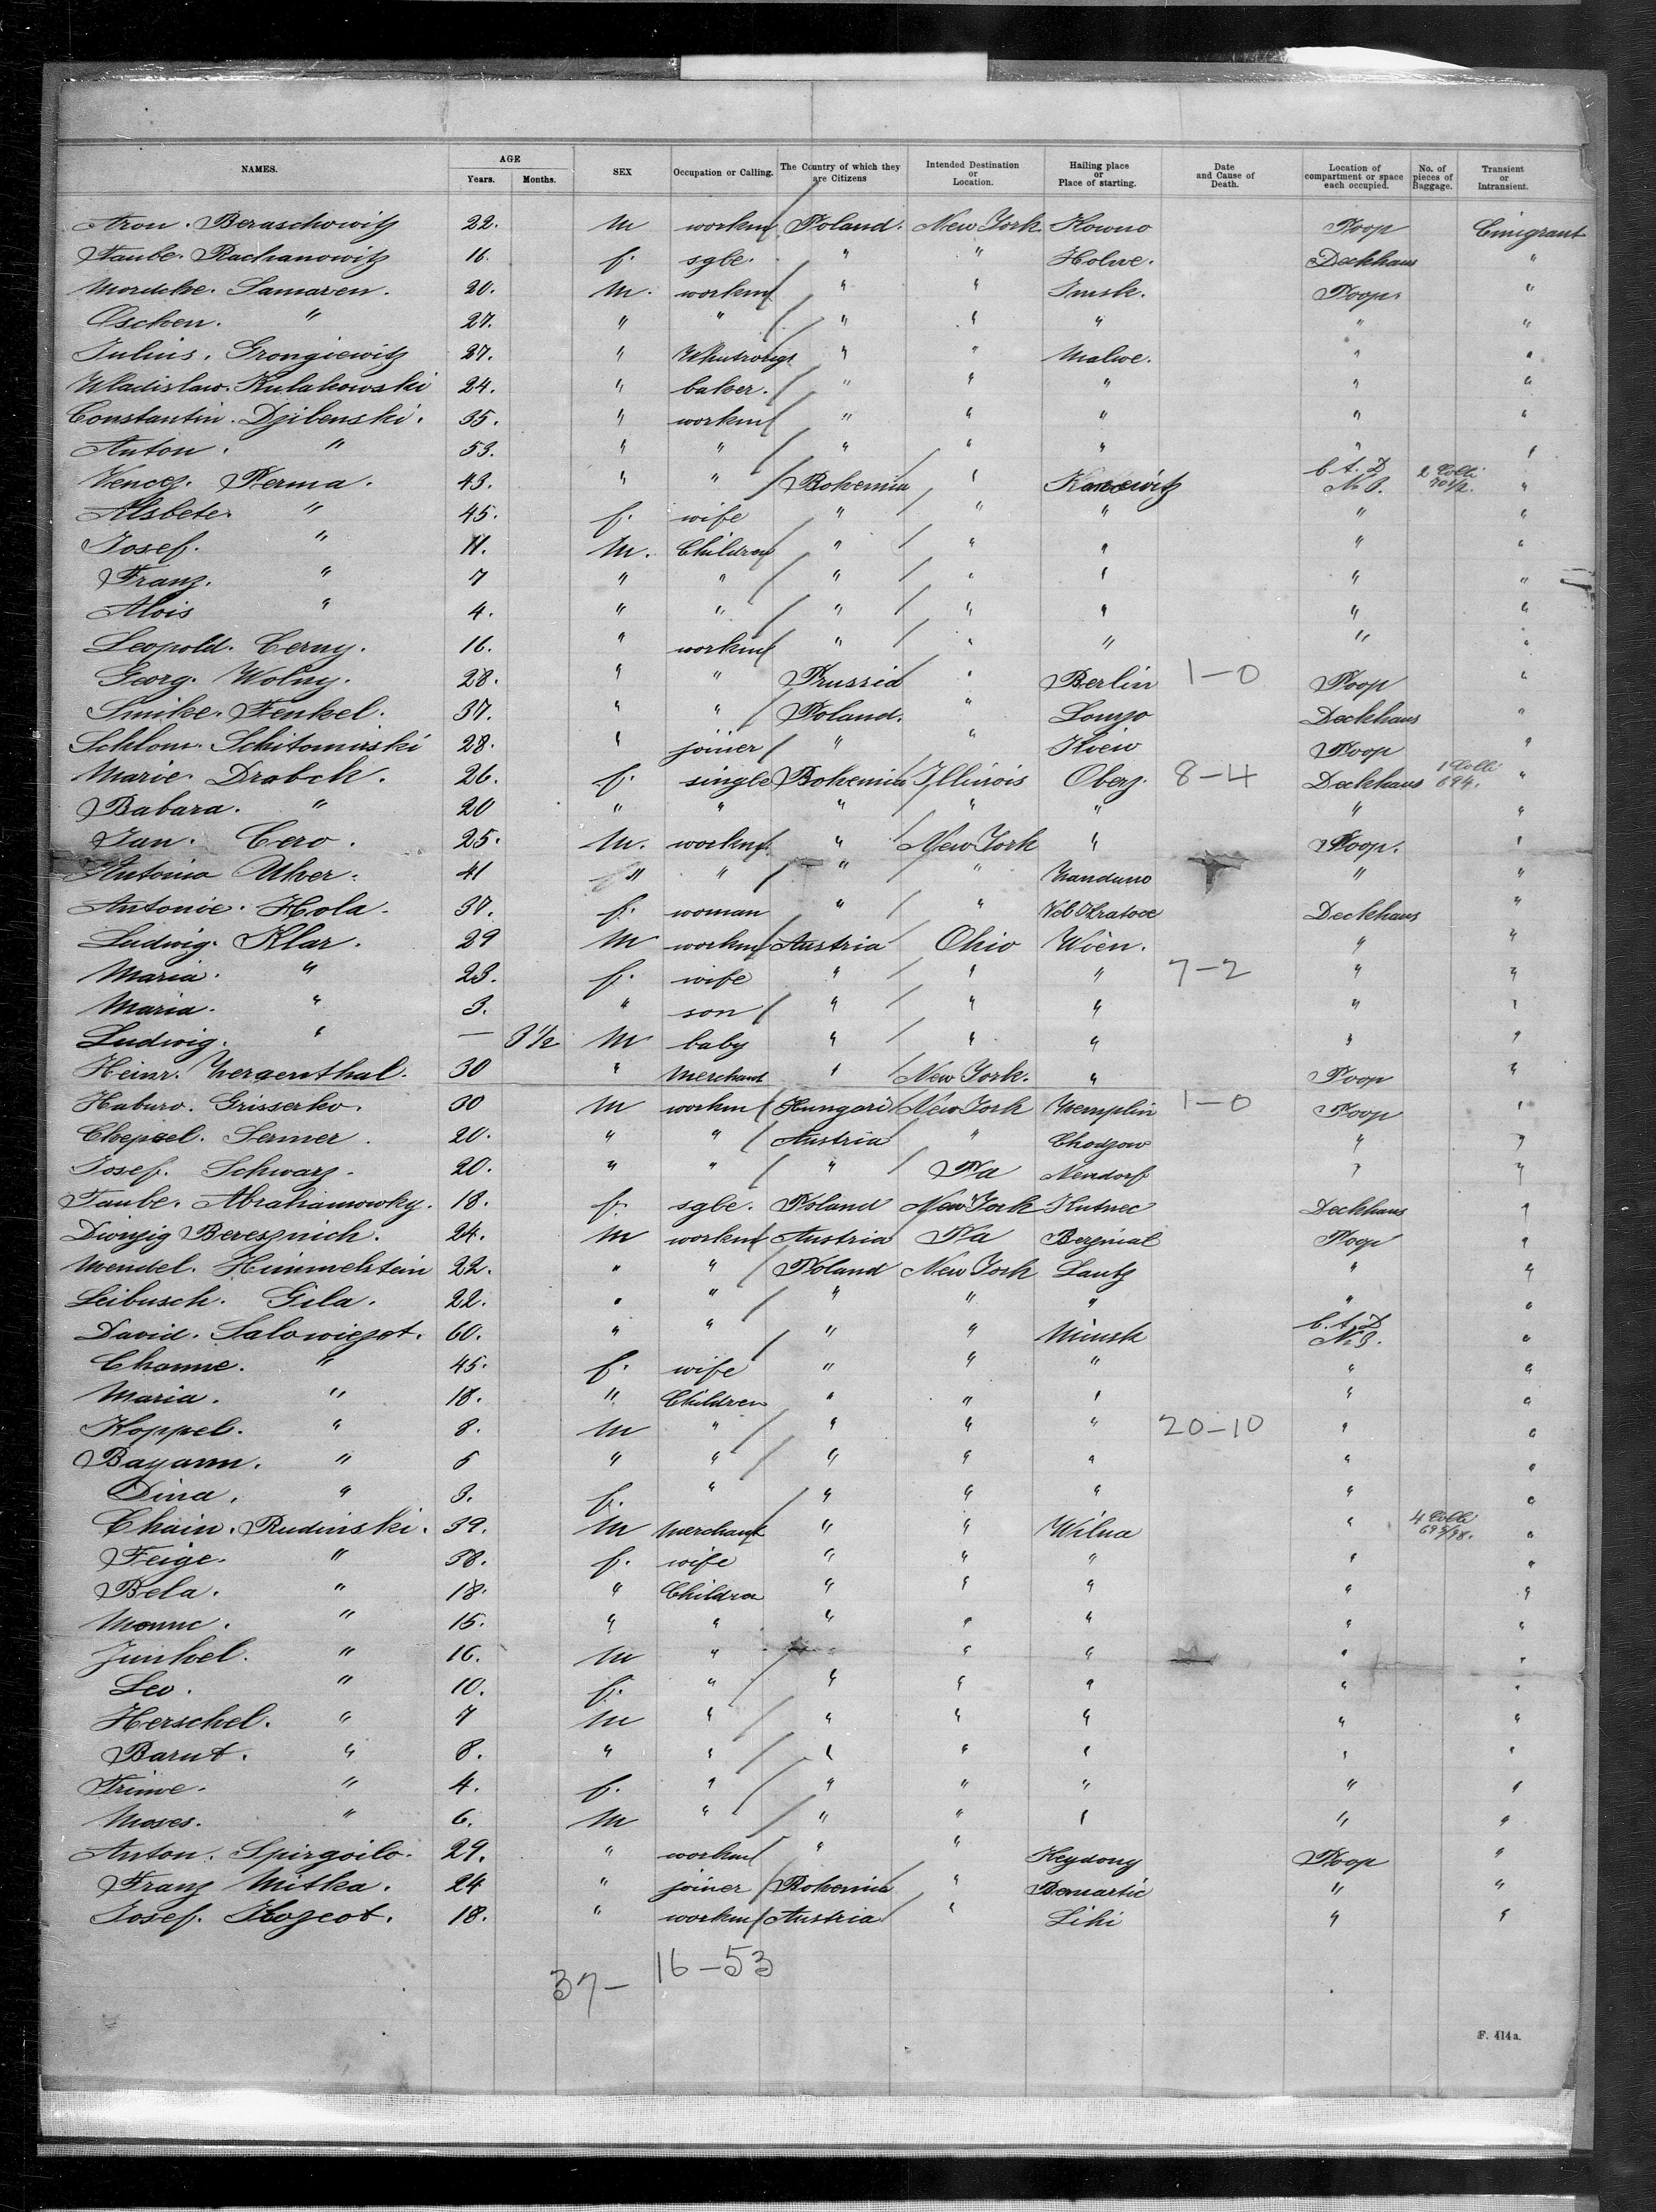 NAMES. AGE Years. Months. SEX Occupation or Calling. The Country of which they are Citizens Intended Destination or Location. Hailing place or Place of starting. Date and Cause of Death. Location of compartment or space each occupied. No. of pieces of Baggage. Transient or Intransient.
Aron. Beraschowitz 22. M workm Poland. New York Kowno Poop Emigrant
Taube. Rachanowitz 16. f. sgle. " " Holwe. Deckhaus "
Mordche. Samaren. 20. M. workm " " Imsk. Poop. "
Oschen. " 27. " " " " " " "
Julius. Grongiewitz 27. " " " Malwe. " "
Wladislaw. Kulakowski 24. " baker. " " " " "
Constantin. Dzibenski. 35. " workm " " " " "
Anton. " 53. " " " " " " "
Vencez. Perma. 43. " " Bohemia " C. A. D No 3. 2 Colli 701/2. "
Alsbeter " 45. f. wife " " " " "
Josef. " 11. M. Children " " " " "
Franz. " 7 " " " " " " "
Alois " 4. " " " " " " "
Leopold. Cerny. 16. " workm " " " " "
Georg. Wolny. 28. " " Prussia " Berlin 1-0 Poop "
Smike. Fenkel. 37. " " Poland. " Lomzo Deckhaus "
Schlom. Schitomirski 28. " joiner " " Kiew Poop "
Marie. Drabek. 26. f. single Bohemia Illinois Oberz. 8-4 Deckhaus 1 Colli 694. "
Babara. " 20 " " " " " " "
Jan. Cero. 25. M. workm " New York " Poop. "
Antonio Uher. 41 " " " " "  "
Antonie. Hola. 37. f. woman " " Deckhaus "
Ludwig. Klar. 29 M workm Austria Ohio Wien. " "
Maria. " 23. f. wife " " " 7-2 " "
Maria. " 3. " son " " " " "
Ludwig. " — 3 1/2 M baby " " " " "
Heinr. Mergenthal. 30 " Merchant " New York. " Poop "
Haburo. Grisserko. 30 M workm Hungari New York Zemplin 1-0 Poop "
Chepsel. Sermer. 20. " " Austria " Chodzow " "
Josef. Schwarz. 20. " " " Pa Neudorf " "
Taube. Abrahamowky. 18. f. sgle. Poland New York Kutnec Deckhaus "
Dwizig Beresznich. 24. M workm Austria Pa Berznial Poop "
Mendel. Himmelstein 22. " " Poland New York Lautz " "
Leibusch. Gila. 22. " " " " " " "
David. Salowiezot. 60. " " " " Minsk C. A. D No 3. "
Channe. " 45. f. wife " " " " "
Maria. " 18. " Children " " " " "
Koppel. " 8. M " " " " 20-10 " "
Bayann. " 5 " " " " " " "
Dina. " 3. f. " " " " " "
Chain. Rudinski. 39. M Merchant " " Wilna " 4 Colli 695/98. "
Feige. " 38. f. wife " " " " "
Bela. " 18. " Childre " " " " "
" 15. " " " " " " "
Junkel. " 16. M " " " " " "
Leo. " 10. f. " " " " " "
Herschel. " 7 M " " " " " "
Barut. " 8. " " " " " " "
Trinve. " 4. f. " " " " " "
Moses. " 6. M " " " " " "
Anton. Spirgoilo. 29. " workm " " Heydony Poop "
Franz Mitka. 24 " joiner Bohemia " Bemartic " "
Josef. Kozcot. 18. " workm Austria " Lihi " "
37- 16-53
F. 414a.